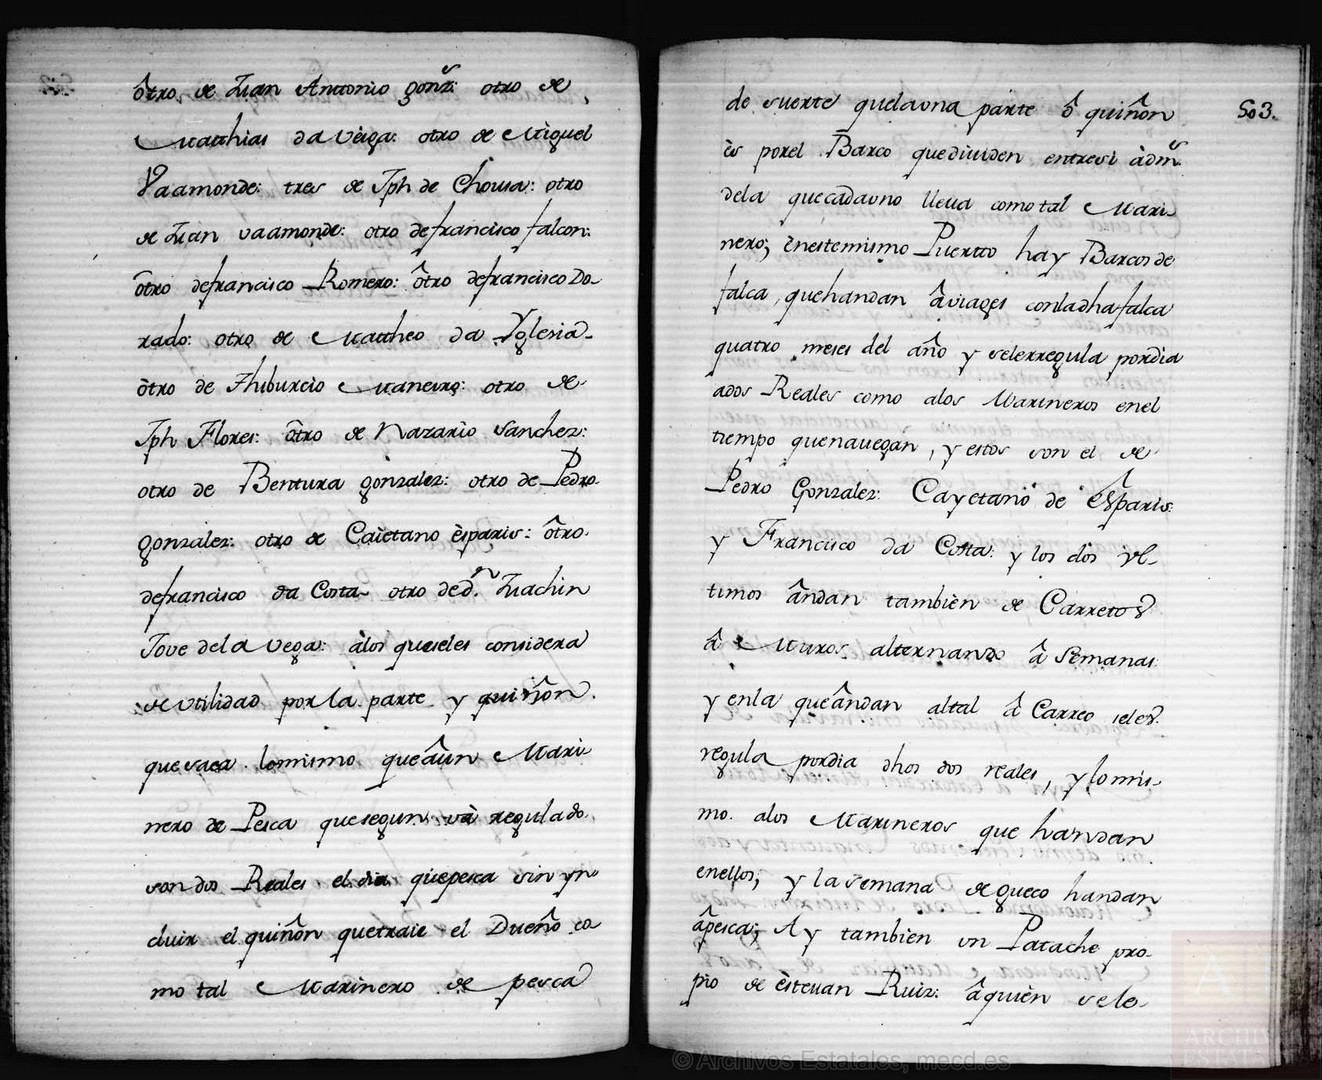 ôtro de Juan Anttonio gonz.s: otro de
Matthias da Veiga: otro de Miguel
Vaamonde: tres de Jph de Chousa: otro
de Juan vaamonde: otro defrancisco falcon:
ôtro defrancisco Romero: ôtro defrancisco Do-
rado: otro de Mattheo da Yglesia
ôtro de Thiburcio Maneiro: otro de
Jph Flores: ôtro de Nazario Sanchez:
otro de Bentura gonzalez: otro de Pedro
gonzalez: otro de Caietano êsparis: ôtro
defrancisco da Costa otro de d.n Juachin
Jove dela Vega: âlos queseles considera
de utilidad por la parte y quiñon
que saca lomismo que âun Mari-
nero de Pesca quesegun và regulado
son dos Reales el dia que pesca sin yn-
cluir el quiñon quetraie el Dueño co-
mo tal Marinero de pesca
503.
de suerte quelauna parte ô quiñon
ês porel Barco quedividen entresi âdm.s
dela quecadauno lleua comotal Mari-
nero; ênestemismo Puertto hay Barcos de
falca, quehandan âviages conladha falca
quatro meses del año y selesrregula pordia
ados Reales como alos Marineros enel
tiempo quenauegan, y estos son el de
Pedro Gonzalez: Cayetano de êsparis
y Francisco da Costa: y los dos vl-
timos ândan tambièn de Carreto
â Muros alternando â Semanas
y enla queândan altal â Carreo seles
regula pordia dhos dos reales, y lo mis-
mo alos Marineros que handan
enellos; y la semana de gueco handan
âpesca; Ay tambien vn Patache pro-
pio de êsteuan Ruiz: âquièn sele
© Archivos Estatales, mecd.es
ARCHIV
ESTATA